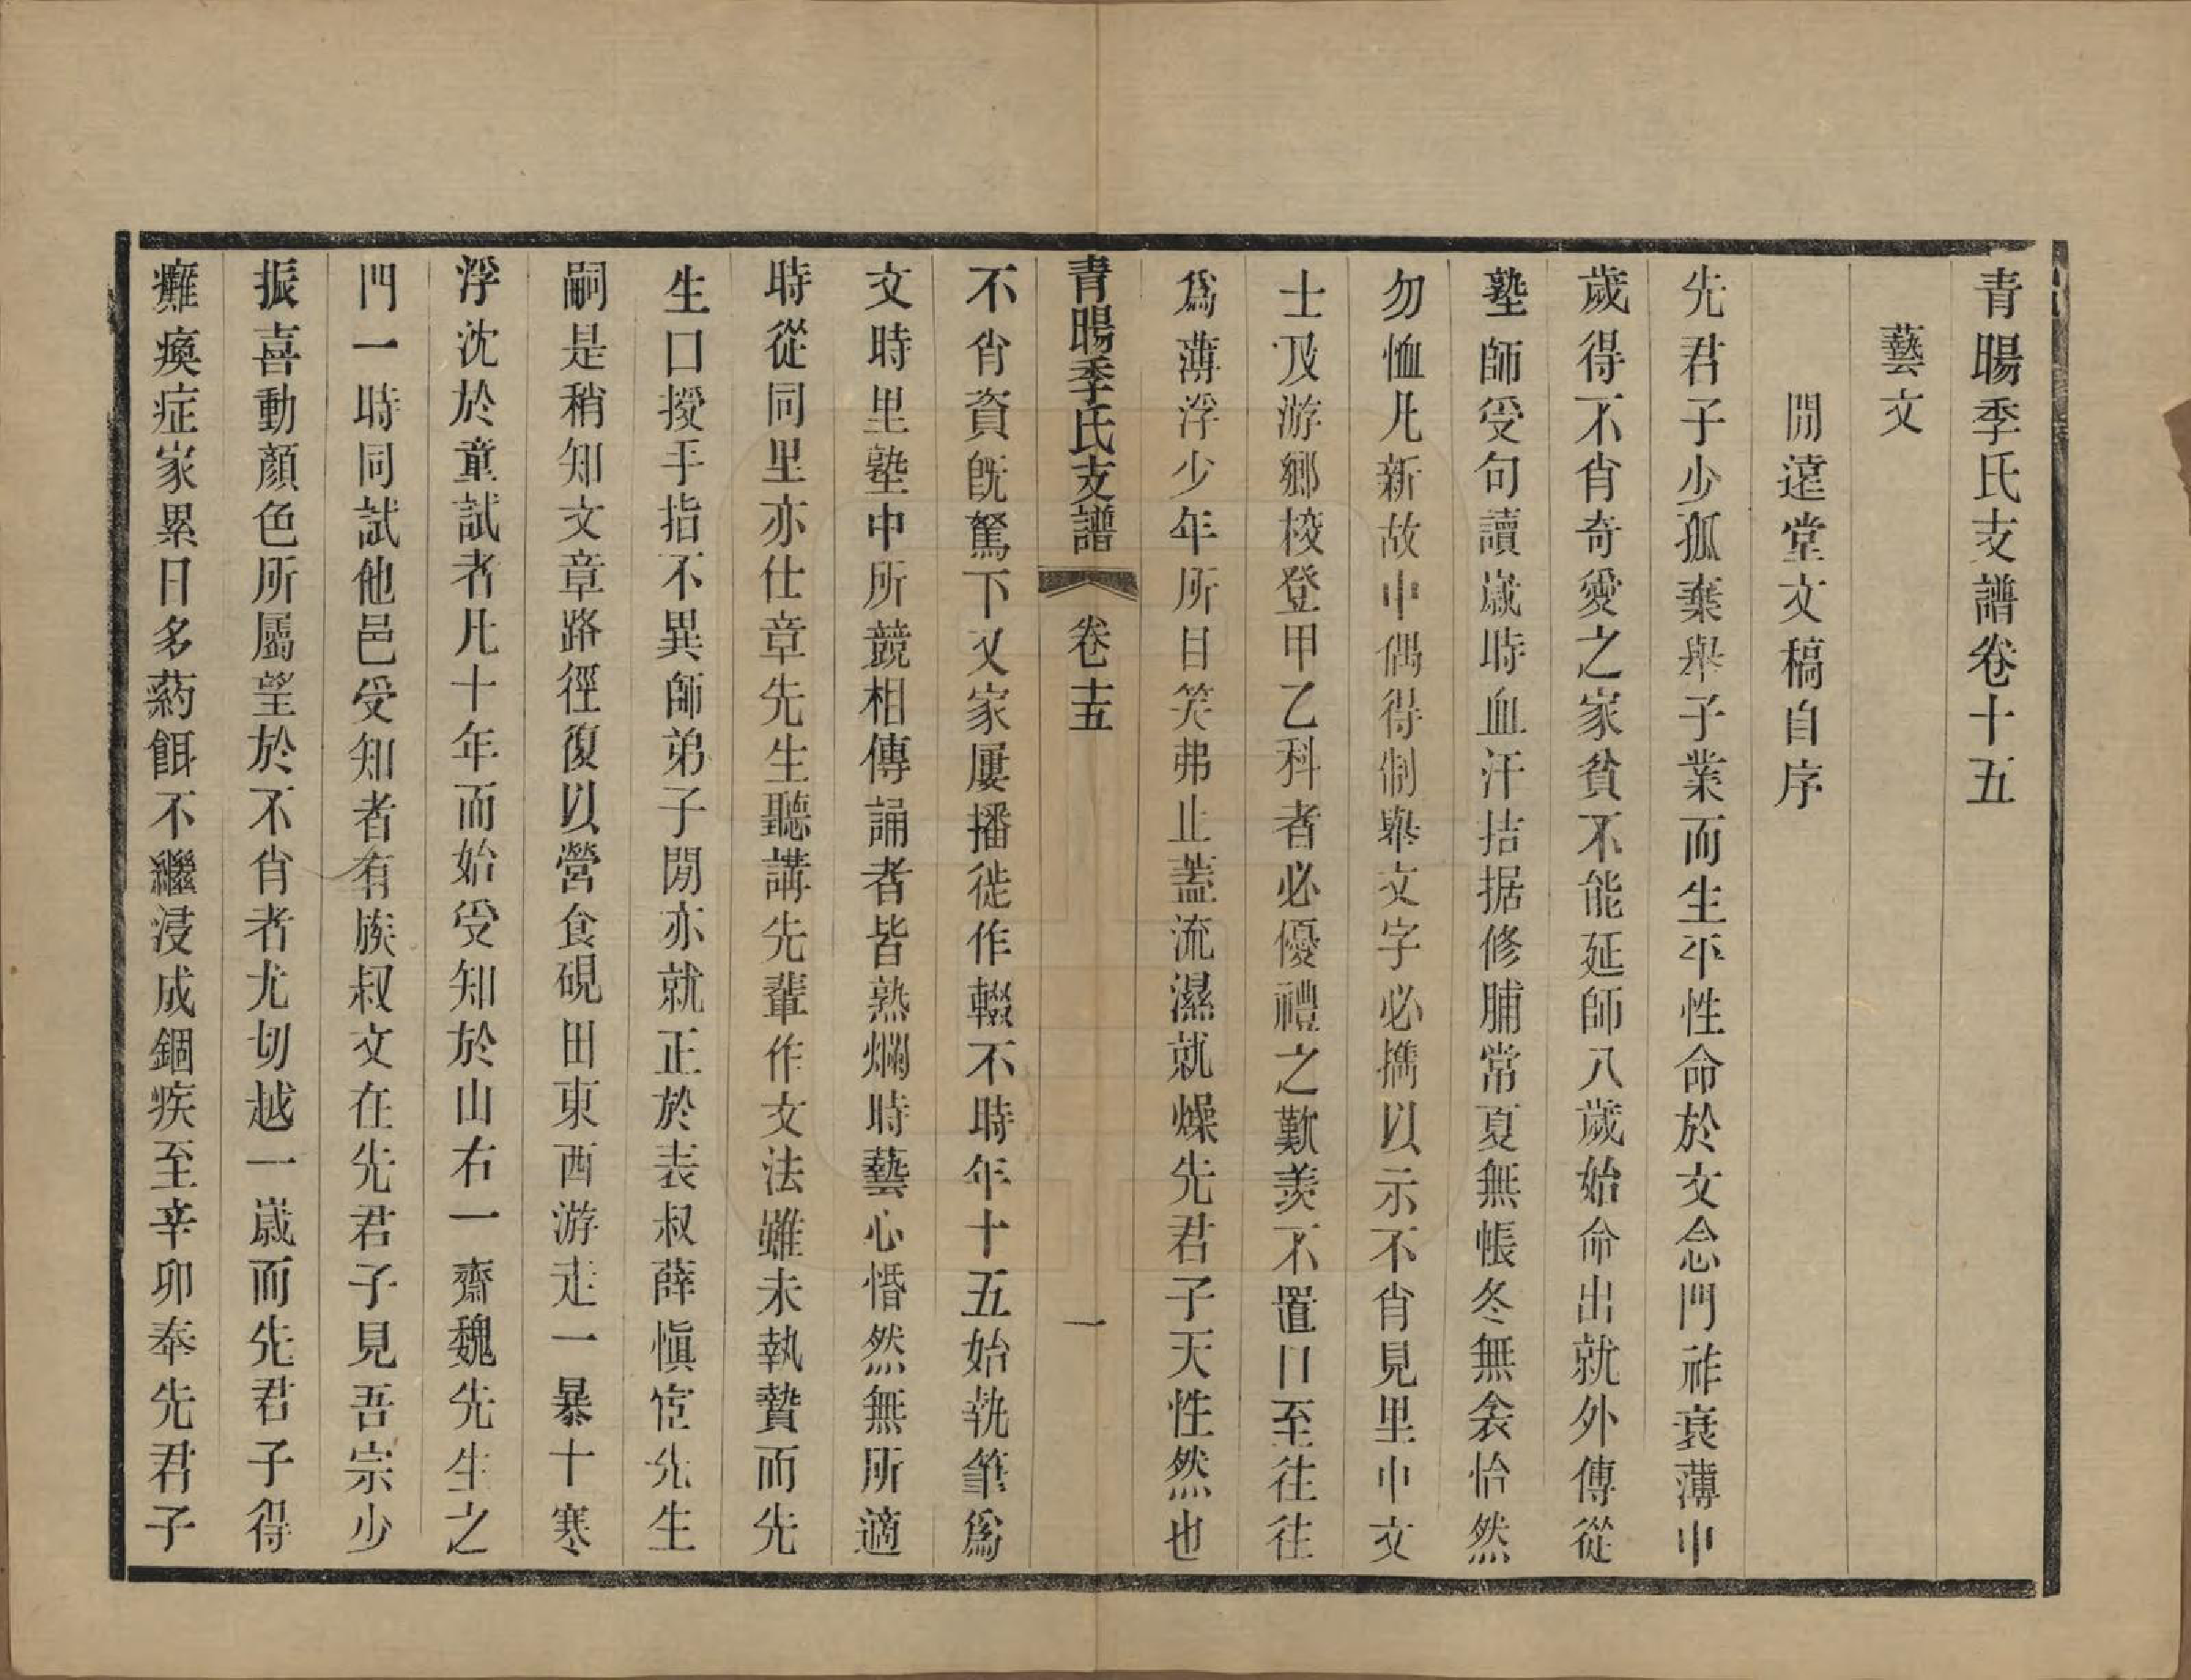 青暘季氏支譜卷十五
藝文
閒遠堂文稿自序
先君子少孤棄舉子業而生平性命於文念門祚衰薄中
歲得不肖奇愛之家貧不能延師八歲始命出就外傅從
塾師受句讀歲時血汗拮据修脯常夏無帳冬無衾怡然
勿恤凡新故中偶得制舉文字必攜以示不肖見里中文
士及游鄉校登甲乙科者必優禮之歎羨不置口至往往
爲薄浮少年所目笑弗止蓋流濕就燥先君子天性然也
青暘季氏支譜 卷十五 一
不肖資旣駑下又家屢播徙作輟不時年十五始執筆爲
文時里塾中所競相傳誦者皆熟爛時藝心惛然無所適
時從同里亦仕章先生聽講先輩作文法雖未執贄而先
生口授手指不異師弟子閒亦就正於表叔薛愼宦先生
嗣是稍知文章路徑復以營食硯田東西游走一暴十寒
浮沈於童試者凡十年而始受知於山右一齋魏先生之
門一時同試他邑受知者有族叔文在先君子見吾宗少
振喜動顏色所屬望於不肖者尤切越一歲而先君子得
癱瘓症家累日多葯餌不繼浸成錮疾至辛卯奉先君子